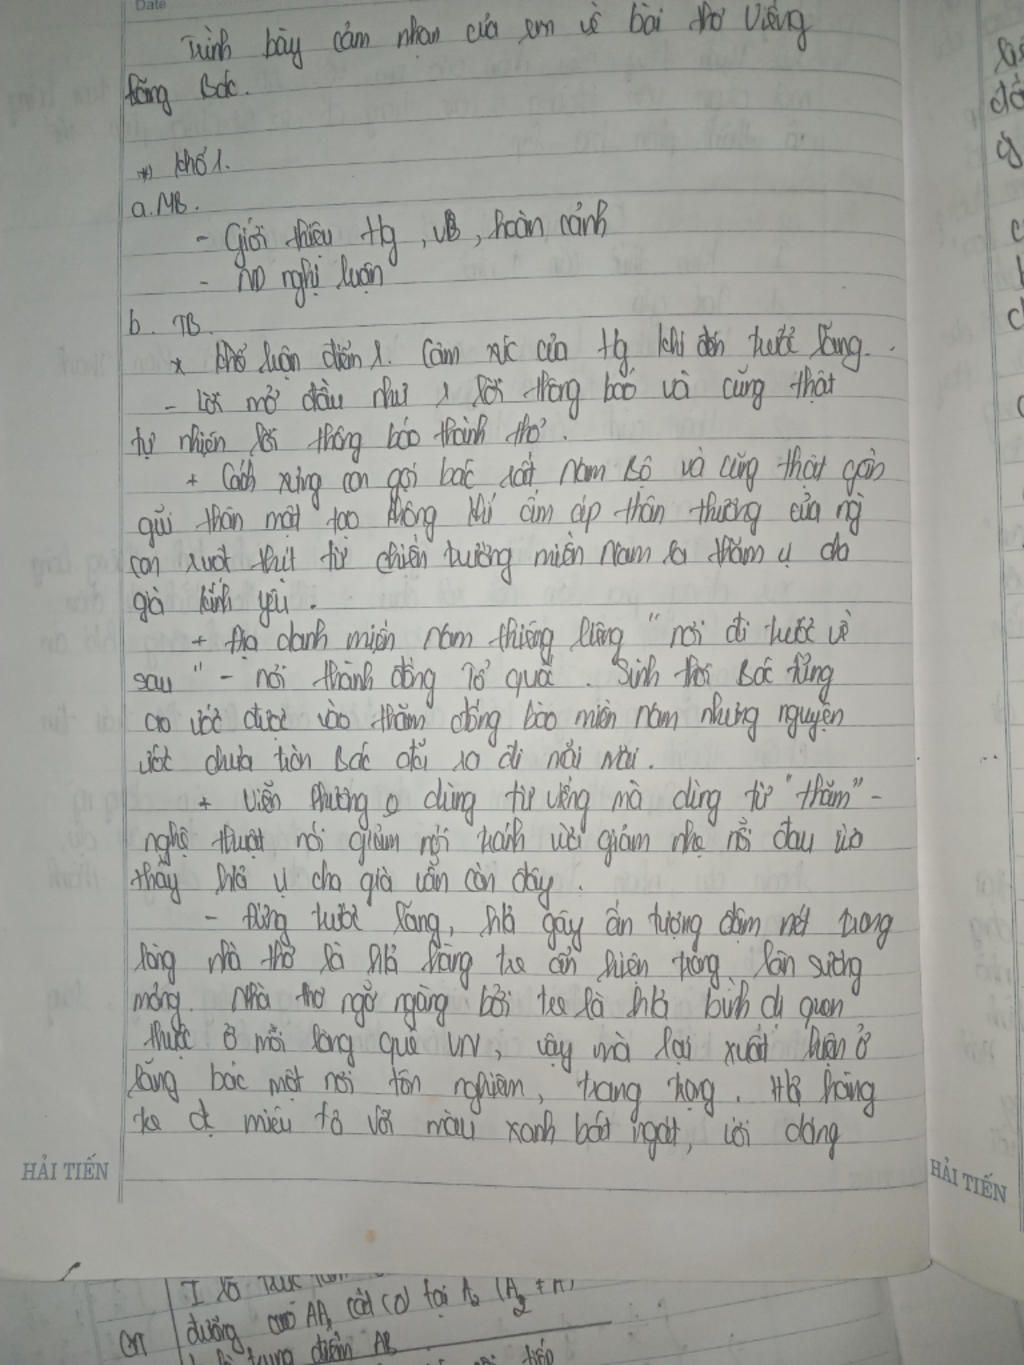 Date
Trình bày cảm nhận của em về bài thơ Viếng
lăng Bác.
*) Khổ 1.
a. MB.
- Giới thiệu tg, VB, hoàn cảnh
- NĐ nghị luận
b. TB.
* Khổ luận điểm 1. Cảm xúc của tg khi đến trước lăng.
- Lời mở đầu như 1 lời thông báo và cũng thật
tự nhiên lời thông báo thành thơ.
+ Cách xưng con gọi bác rất Nam Bộ và cũng thật gần
gũi thân mật tạo không khí ấm áp thân thương của ng
con ruột thịt từ chiến trường miền Nam ra thăm vị cha
già kính yêu.
+ Địa danh miền Nam thiêng liêng "nơi đi trước về
sau" - nơi thành đồng Tổ quốc. Sinh thời Bác từng
ao ước được vào thăm đồng bào miền nam nhưng nguyện
ước chưa tròn Bác đã ra đi mãi mãi.
+ Viễn Phương o dùng từ viếng mà dùng từ "thăm" -
nghệ thuật nói giảm nói tránh vừa giảm nhẹ nỗi đau vừa
thấy như vị cha già vẫn còn đây.
- Đứng trước lăng, h/ả gây ấn tượng đậm nét trong
lòng nhà thơ là h/ả hàng tre ẩn hiện trong làn sương
mỏng. Nhà thơ ngỡ ngàng bởi tre là h/ả bình dị quen
thuộc ở mỗi làng quê VN, vậy mà lại xuất hiện ở
lăng bác một nơi tôn nghiêm, trang trọng. H/ả hàng
tre đc miêu tả với màu xanh bát ngát, với dáng
HẢI TIẾN
HẢI TIẾN
đường cao AA, cắt (O) tại A₂ (A₂ ≠ A)
trung điểm AB